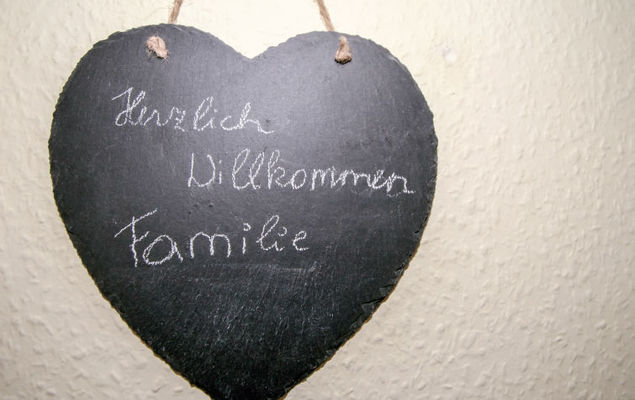 Herzlich
Willkommen
Familie